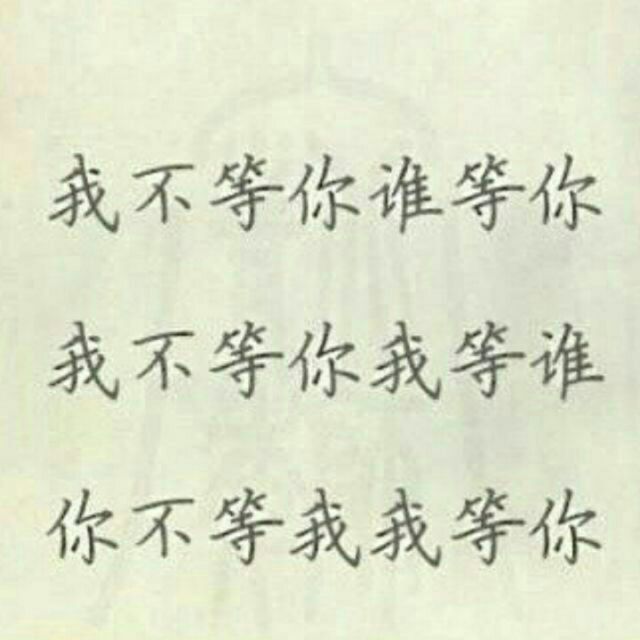 我不等你谁等你
我不等你我等谁
你不等我我等你